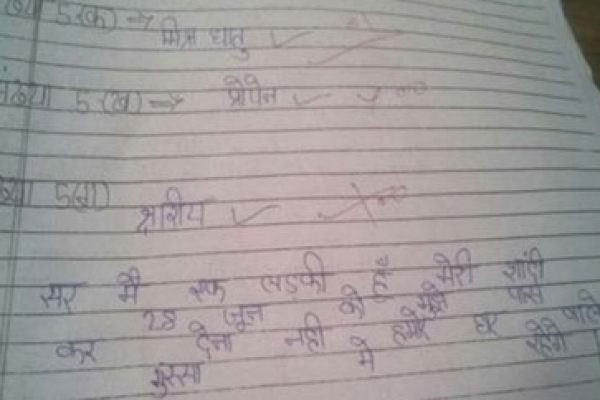 5(क) ⇒
मिश्र धातु
संख्या 5(ख) ⇒ प्रोपेन
5(ग)
क्षारीय
सर मै एक लडकी हूँ मेरी शादी
28 जून को मुझे पास
कर देना नही हमारे घर वाले
गुस्सा मे रहेगे